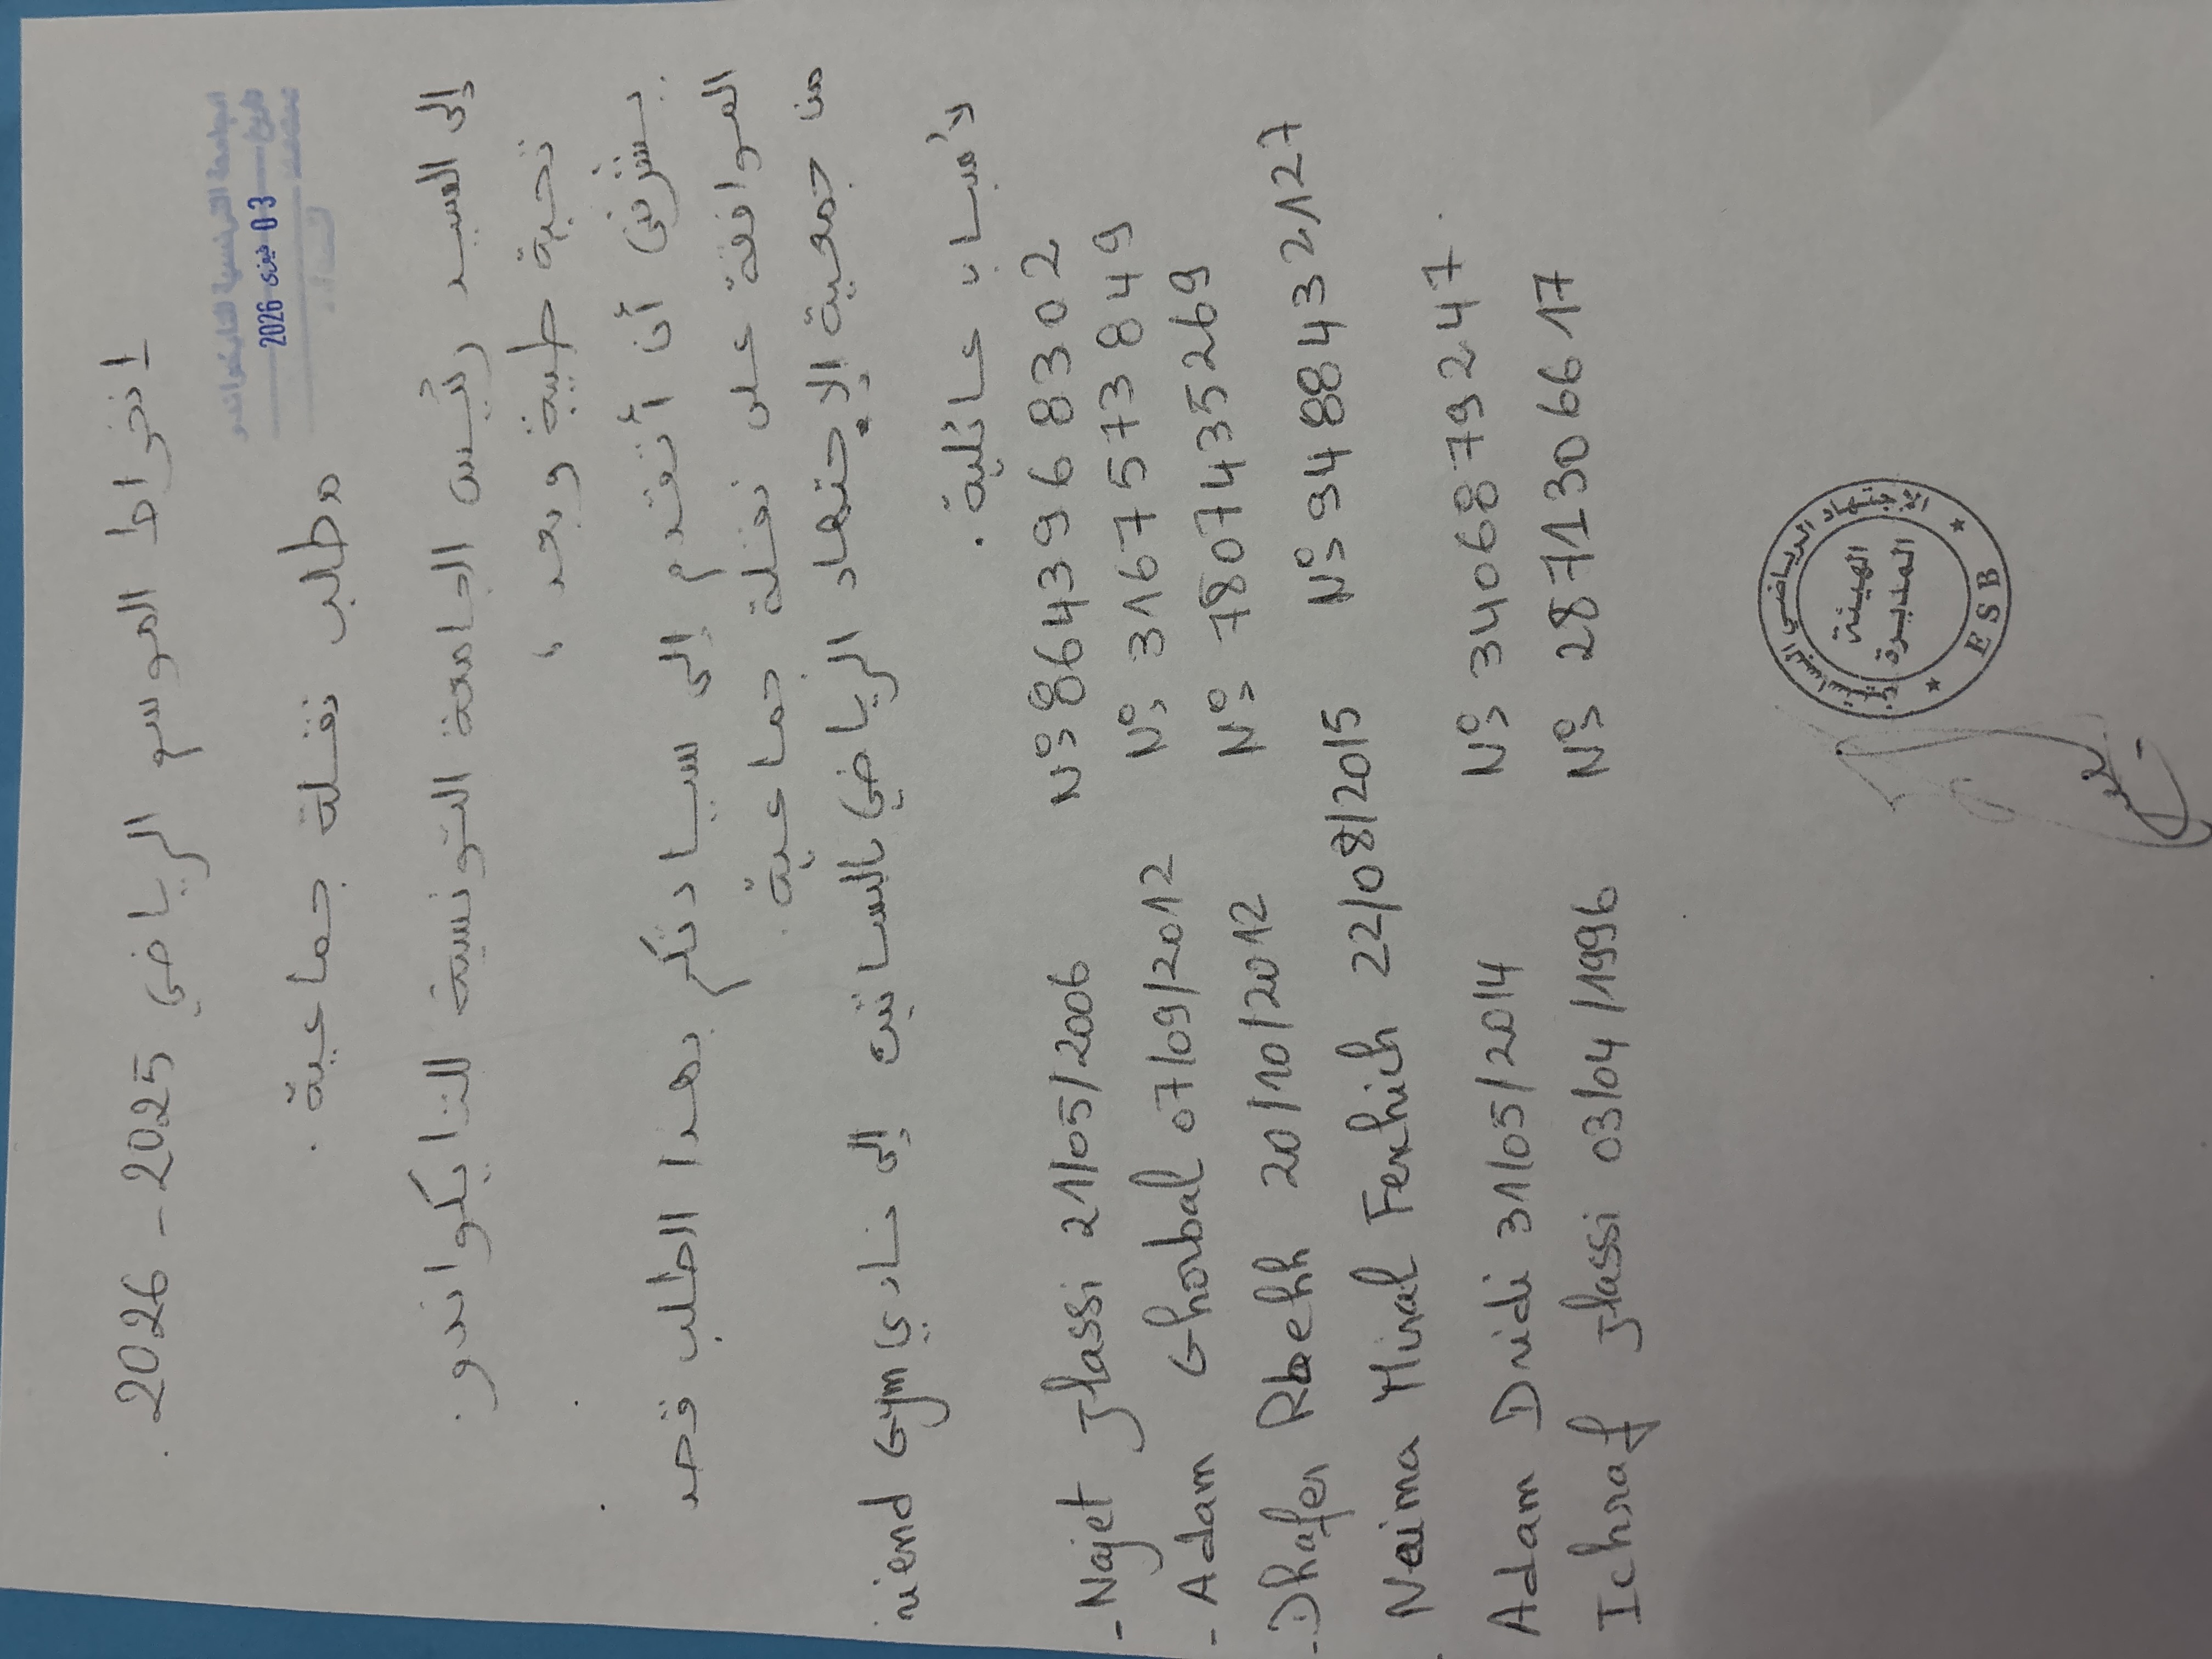 انخراط الموسم الرياضي 2025 - 2026.
الجامعة التونسية للتايكواندو
تاريخ
03 فيفري 2026
مطلب نقلة جماعية.
إلى السيد رئيس الجامعة التونسية للتايكواندو.
تحية طيبة وبعد،
يشرفني أن أتقدم إلى سيادتكم بهذا الطلب قصد
الموافقة على نقلة جماعية.
من جمعية الإجتهاد الرياضي بالبساتين إلى نادي Gym
لأسباب عائلية.
- Najet Jlassi 21/05/2006 N°: 8643968302
- Adam Ghorbal 07/09/2012 N°: 3167573849
- Dhafer Rbehh 20/10/2012 N°: 7807435269
Naima Miral Ferhich 22/08/2015 N°: 94884732127
Adam Dridi 31/05/2014 N°: 3406879247.
Ichraf Jlassi 03/04/1996 N°: 2871306617
الإجتهاد الرياضي
الهيئة
المديرة
* E S B *